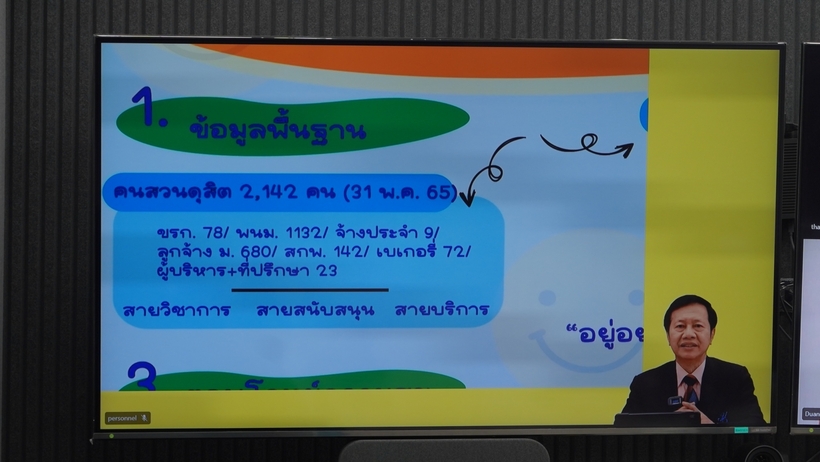 1.
ข้อมูลพื้นฐาน
คนสวนดุสิต 2,142 คน (31 พ.ค. 65)
ขรก. 78/ พนม. 1132/ จ้างประจำ 9/
ลูกจ้าง ม. 680/ สกพ. 142/ เบเกอรี่ 72/
ผู้บริหาร+ที่ปรึกษา 23
สายวิชาการ สายสนับสนุน สายบริการ
3
"อยู่อย
personnel